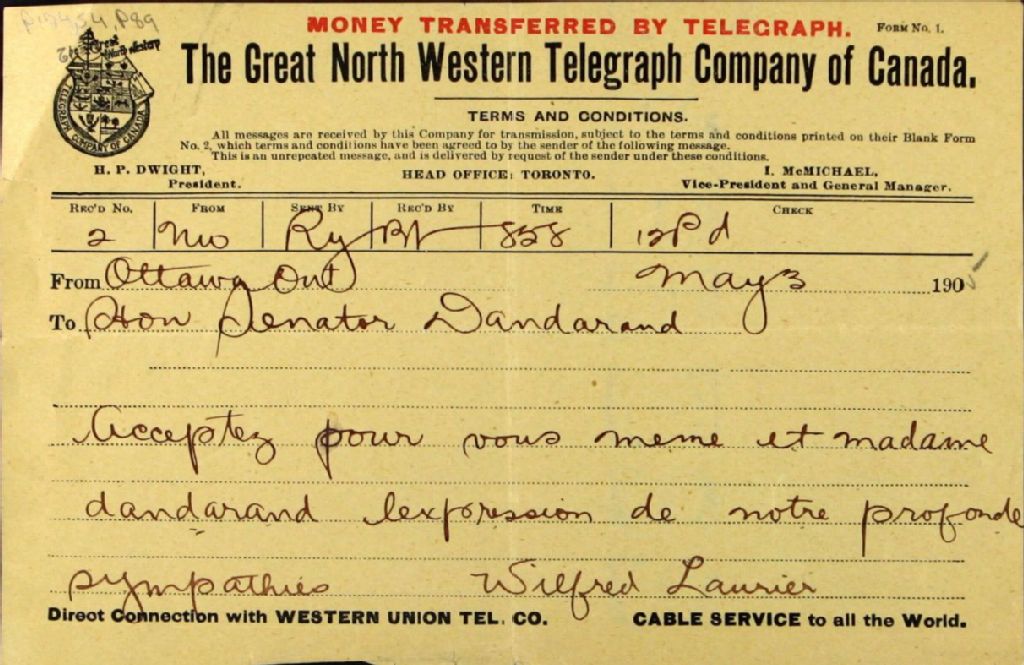 P174,S4,P89
MONEY TRANSFERRED BY TELEGRAPH. FORM NO. 1.
The Great North Western
TELEGRAPH COMPANY OF CANADA
The Great North Western Telegraph Company of Canada.
TERMS AND CONDITIONS.
All messages are received by this Company for transmission, subject to the terms and conditions printed on their Blank Form
No. 2, which terms and conditions have been agreed to by the sender of the following message.
This is an unrepeated message, and is delivered by request of the sender under these conditions.
H. P. DWIGHT, HEAD OFFICE: TORONTO. I. McMICHAEL,
President. Vice-President and General Manager.
REC'D NO. FROM SENT BY REC'D BY TIME CHECK
2 Ry 858 12 Pd
From Ottawa Ont May 3 1905
To Hon Senator Dandarand
Acceptez pour vous meme et madame
dandarand lexpression de notre profonde
sympathies Wilfred Laurier
Direct Connection with WESTERN UNION TEL. CO. CABLE SERVICE to all the World.